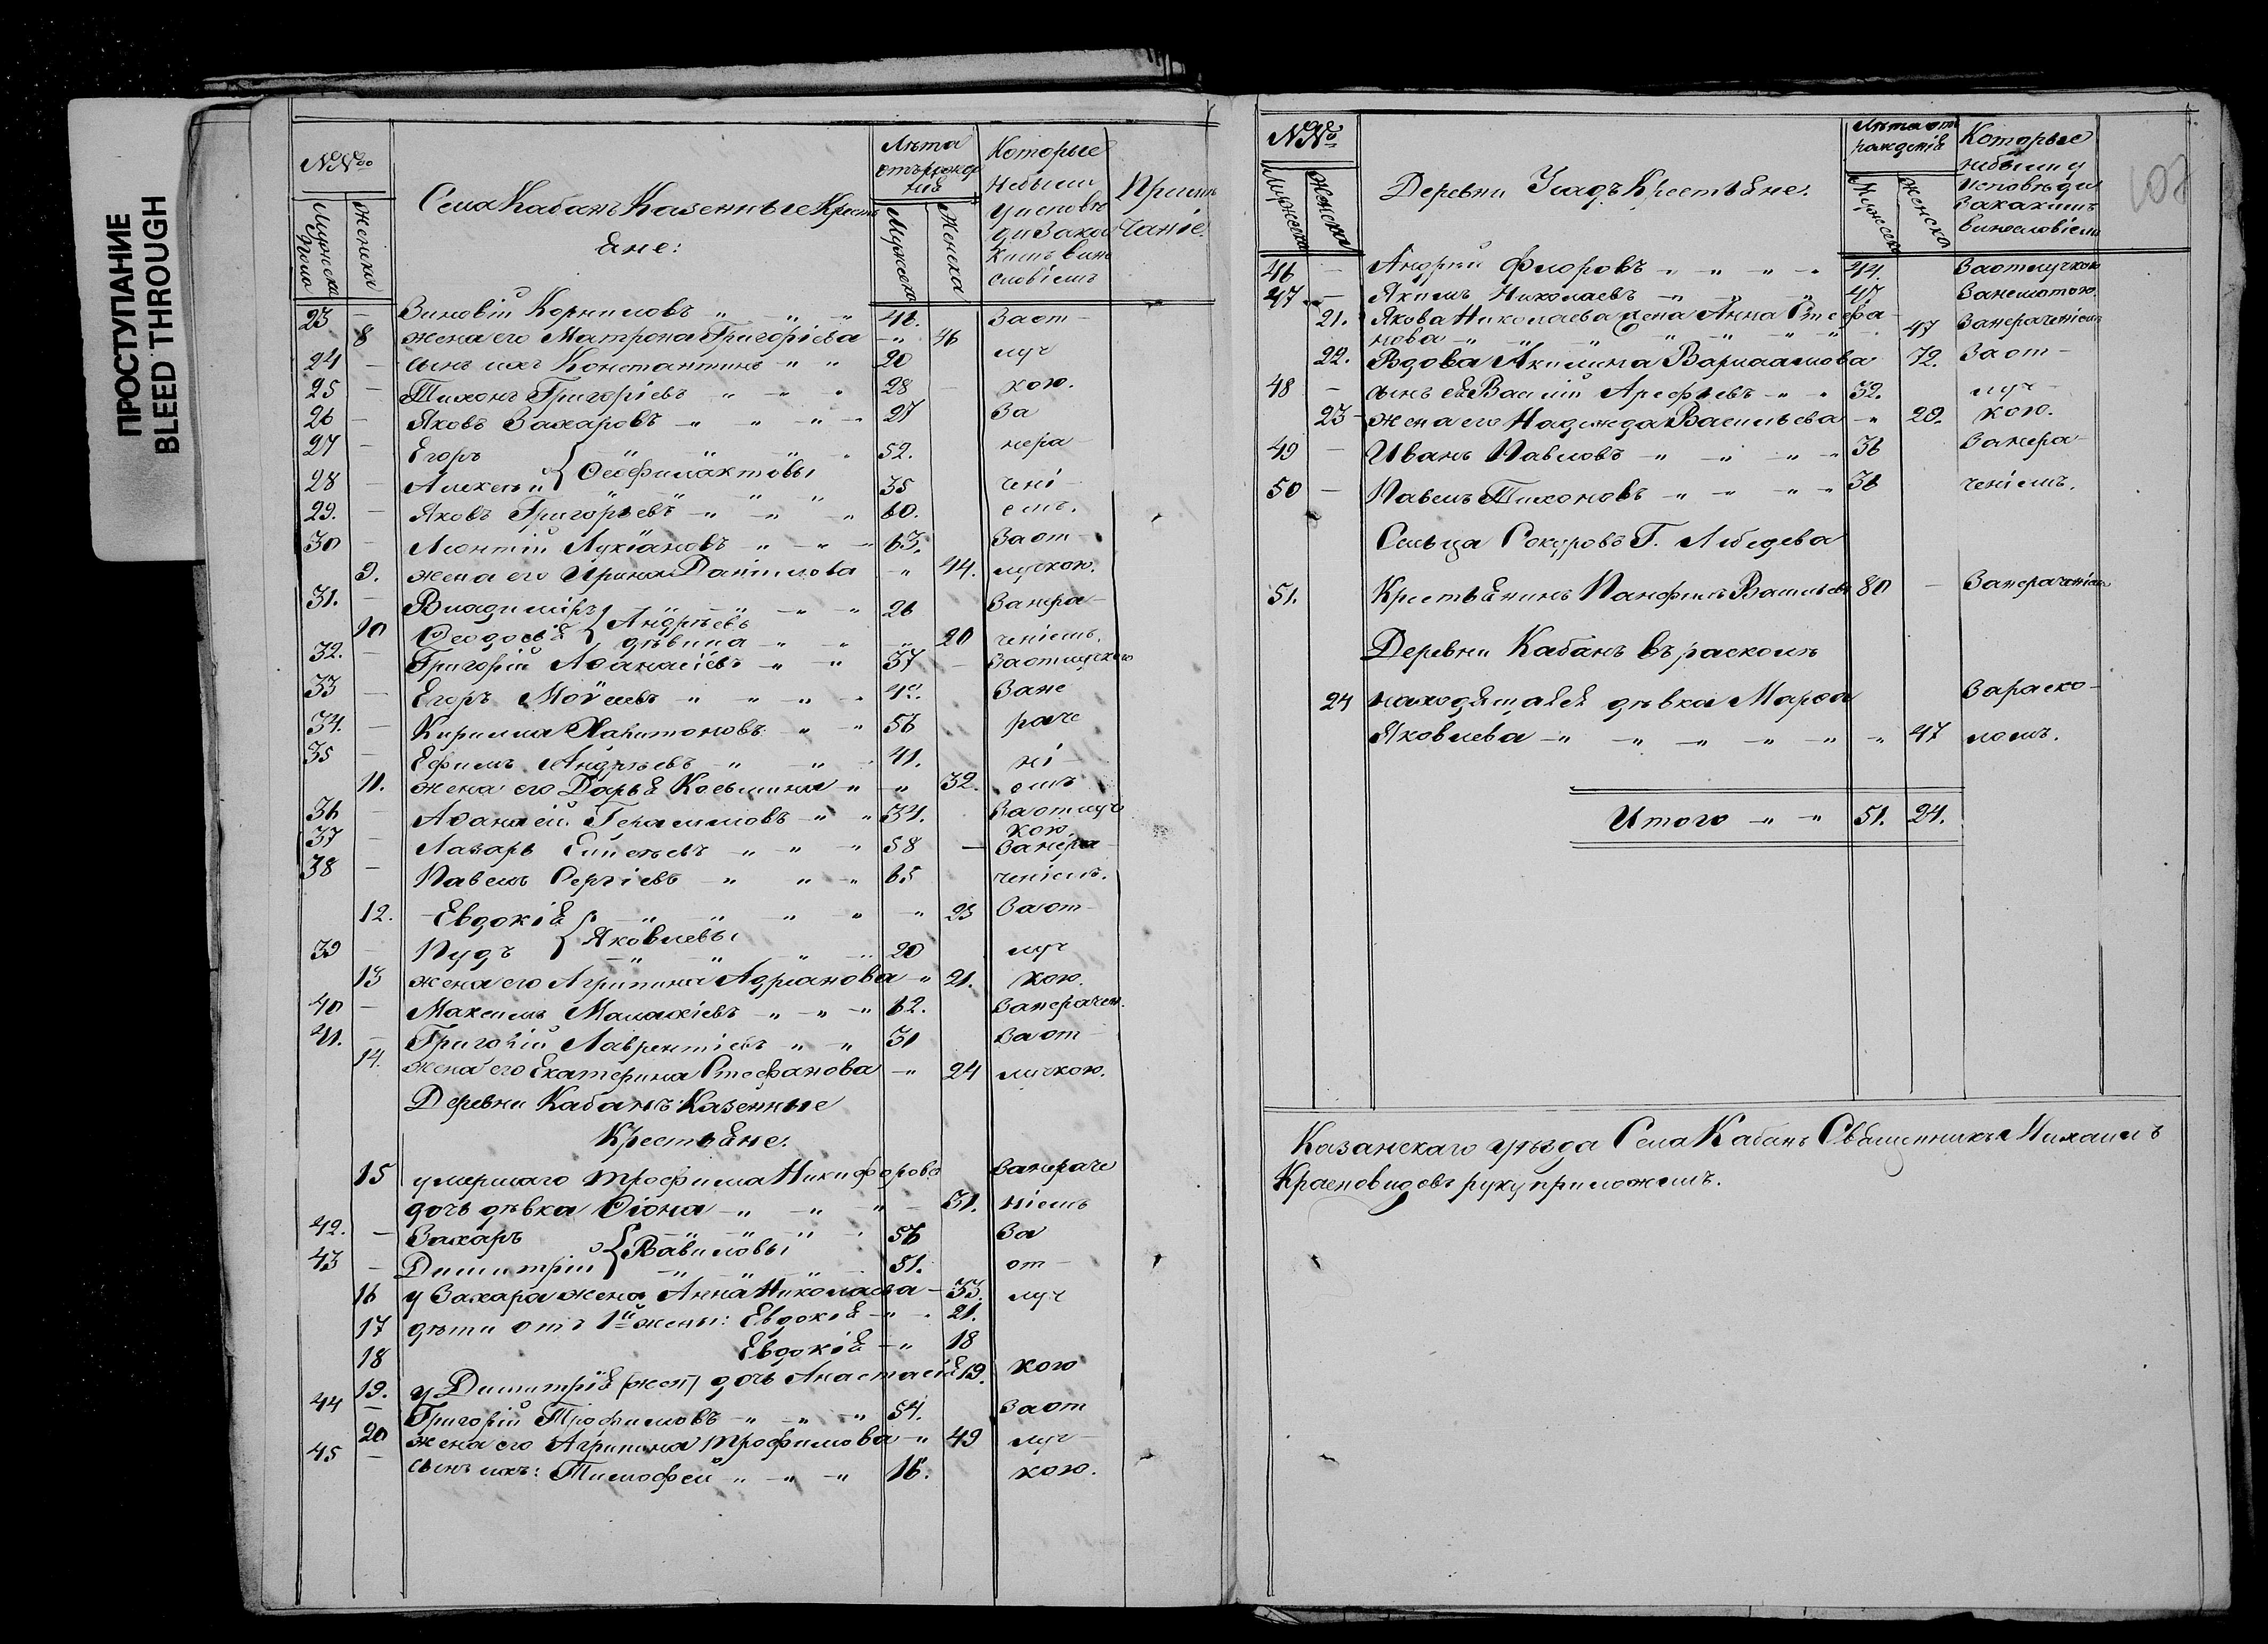 ПРОСТУПАНИЕ
BLEED THROUGH
№№
Мужеска пола
Женска
Села Кабанъ Казенные Кресть
яне:
Лѣта
отърожде
нія
Мужеска
Женска
Которые
небыли
уисповѣ
ди Закa
кимъ вин
словіемъ
Примѣ
чаніе.
23 — Зиновій Корниловъ " " " 46. Заот-
8 жена его Матрона Григоріева — " 46
24 — сынъ ихъ Константинъ " " 20 луч
25 — Тихонъ Григоріевъ " " " 28 — кою.
26 — Яковъ Захаровъ " " " 27 За
27 — Егоръ " " " 52. нера-
{ Ѳеофилактовы
28 — Алексѣй " " " 35 чені-
29. — Яковъ Григорьевъ " " " 60. емъ.
30 — Леонтій Лукіановъ " " " 63. Заот-
9. жена его Ирина Даніилова — " 44. лучкою.
31. — Владиміръ { Андрѣевъ " " 26 Занера-
10 Ѳеодосья { дѣвица " " " 20 ченіемъ.
32. — Григорій Аѳанасіевъ " " 37 — Заотлучкою
33 — Егоръ Моѵсеевъ " " " Зане
34. — Кирилла Харитоновъ " " 56 раче
35 — Ефимъ Андрѣевъ " " 41. ні-
11. жена его Дарья Косьмина " " 32. емъ
36 — Аѳанасій Герасимовъ " " 34. Заотлуч
кою.
37 — Лазарь Елисѣевъ " " " 58 — Занера-
38 — Павелъ Сергіевъ " " " 65 ченіемъ.
12. Евдокія " " " " " 23 Заот-
{ Яковлевы
39 — Пудъ " " " 20 луч
13 жена его Агрипина Адріанова — " 21. кою.
40 — Максимъ Малахіевъ " " " 62. Занерачен.
41. — Григорій Лаврентіевъ " " 31 Заот-
14. жена его Екатерина Стефанова — " 24 лучкою.
Деревни Кабанъ Казенные
Крестьяне.
15 умершаго Трофима Никифорова Занераче
дочь дѣвка " " " 31. ніемъ
42. — Захаръ " " " 56 За
{ Вавиловы
43 — Димитрій " " " 51. от-
16 у Захара жена Анна Николаева — 33. луч
17 дѣти отъ 1й жены: Евдокія — " 21.
18 Евдокія — " 18
19. у Димитрія (жен) дочь Анастасія 19. кою
44 — Григорій Трофимовъ " " " 54. Заот
20 жена его Агрипина Трофимова — " 49 луч-
45 — сынъ ихъ: Тимофей " " " 16. кою.
№№
Мужеска
Женска
Деревни Крестьяне.
Лѣта отъ
рожденія
Мужеска
Женска
Которые
небыли у
исповѣди
Закакимъ
винословіемъ
108
46 — Андрей Флоровъ " " " " 44. Заотлучкою
47 — Якимъ Николаевъ " " " 47. Занемотою.
21. Якова Николаева жена Анна Стефа-
нова " " " " " " 47 Занераченіемъ
22. Вдова Акилина Варлаамова 72. Заот-
48 — сынъ ея Василій Арефьевъ " " 32. луч-
23 — жена его Надежда Васильева — " 20. кою.
49 — Иванъ Павловъ " " " " 36 Занера-
50 — Павелъ Тихоновъ " " " " 36 ченіемъ.
Сельца Сокуровъ Г. Лебедева
51. Крестьянинъ Панфилъ Васильевъ 80 — Занераченіемъ
Деревни Кабанъ въ расколѣ
24 находящаяся дѣвка Марѳа Зараско-
Яковлева " " " " " " 47 ломъ.
Итого " " 51. 24.
Казанскаго уѣзда Села Кабанъ Священникъ Михаилъ
Красновидовъ руку приложилъ.